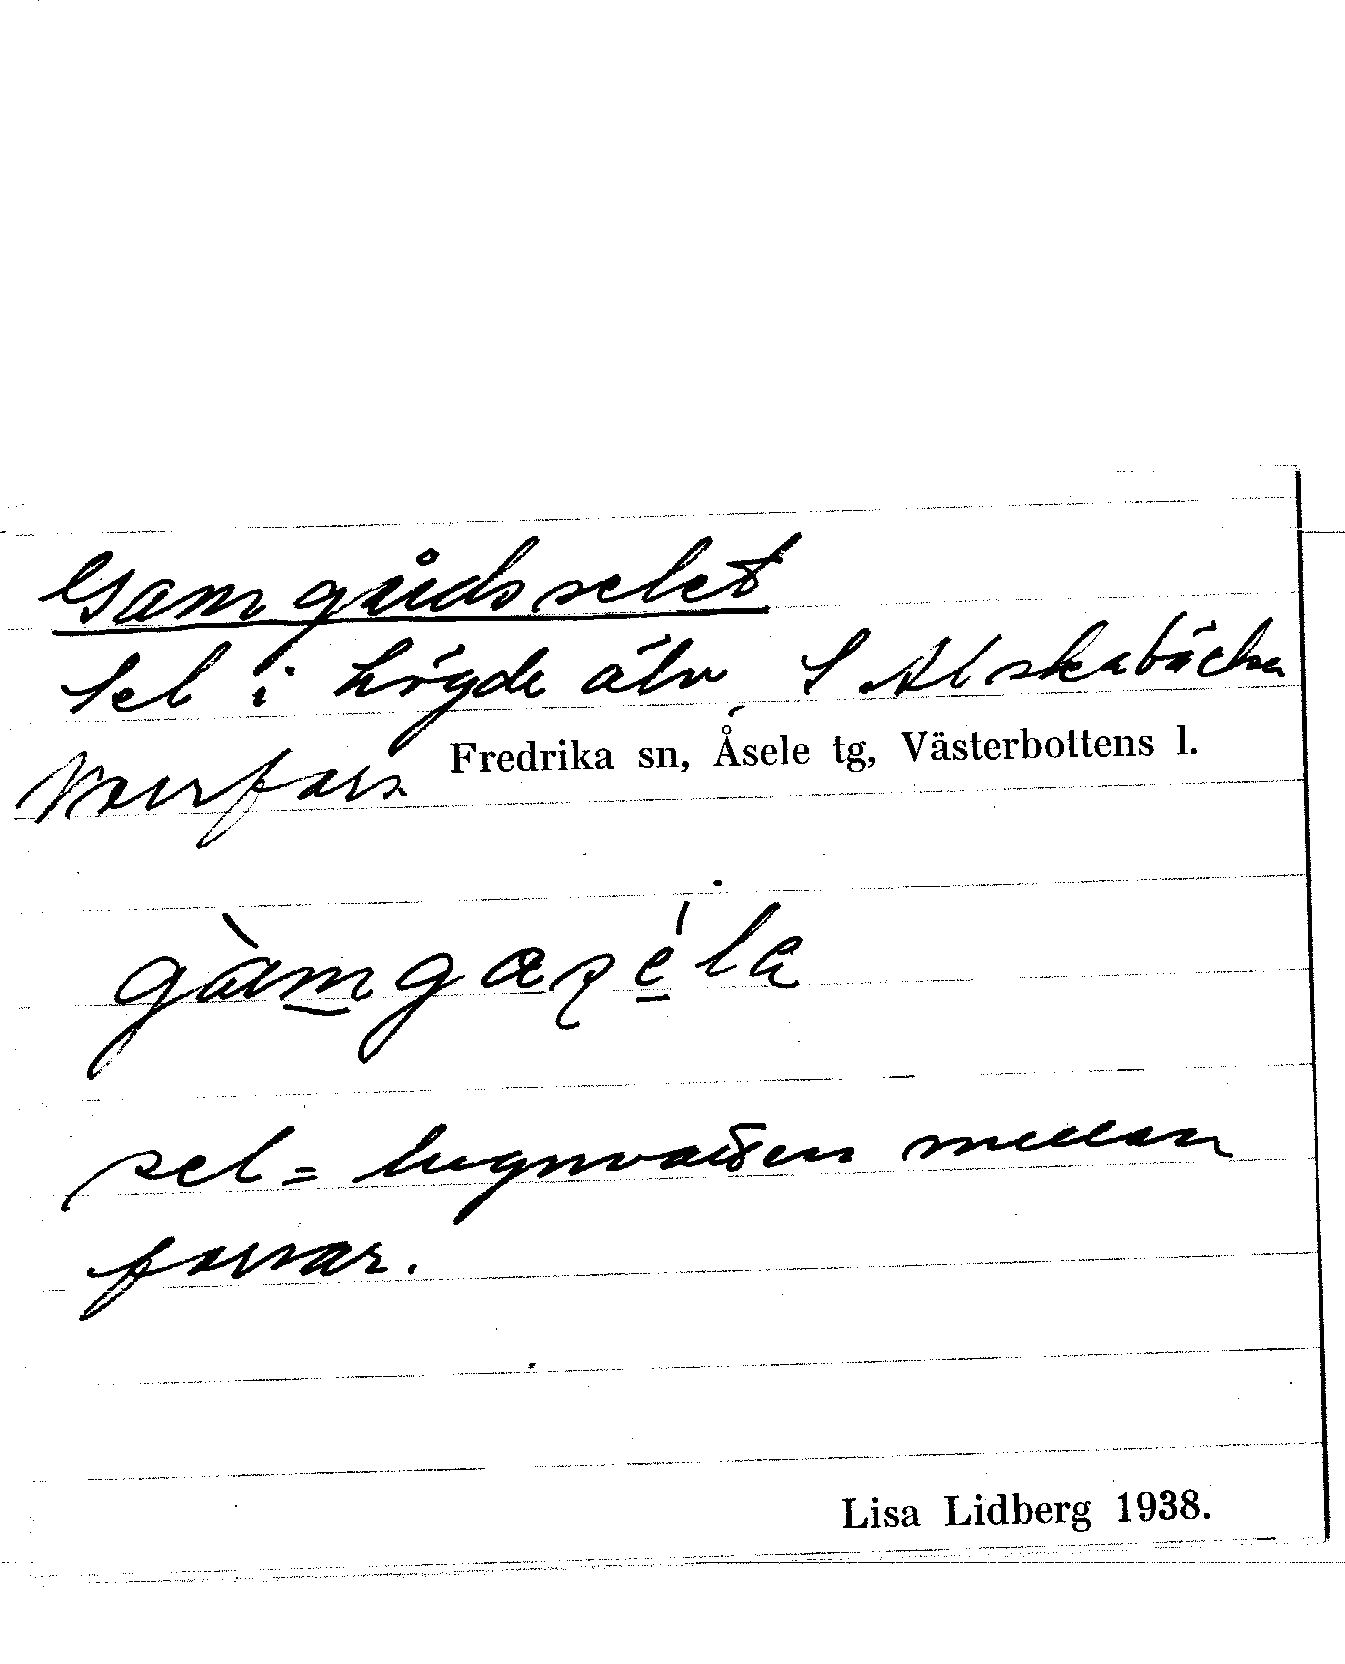 Gamgårdsselet
Sel i Lögde älv, S Alskabäcka
Norrfors Fredrika sn, Åsele tg, Västerbottens l.
gàmgaṣéla
sel = lugnvatten mellan
forsar.
Lisa Lidberg 1938.